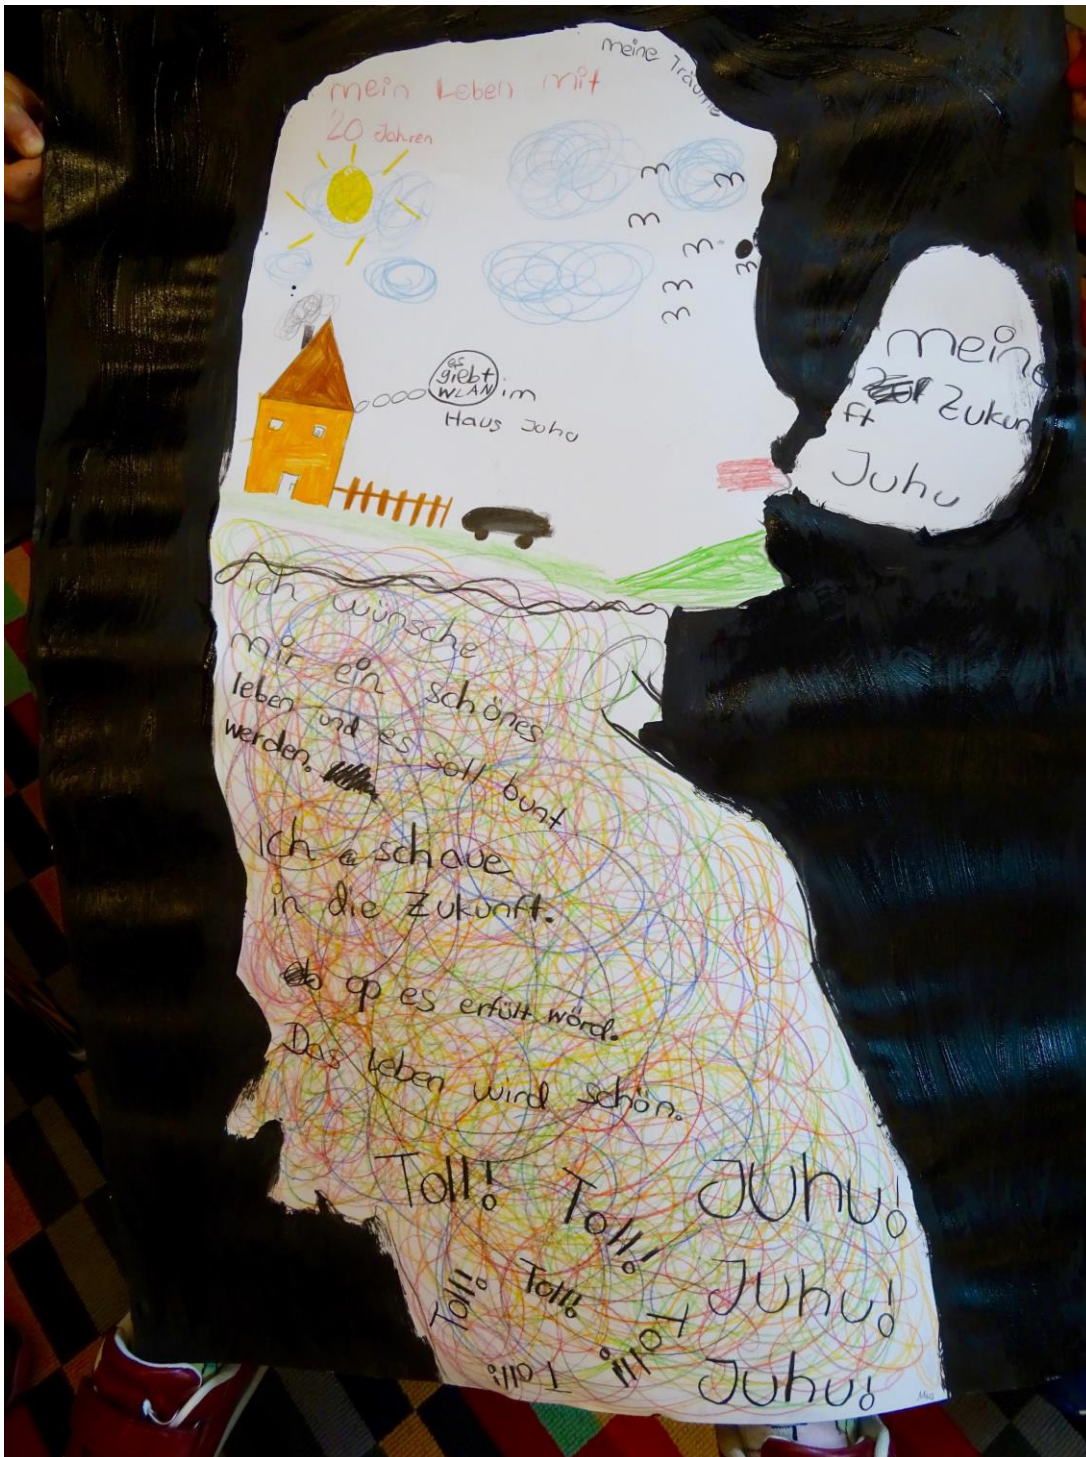 meine Träume
mein Leben mit
20 Jahren
es
giebt
WLAN im
Haus Juhu
meine
Zukun
ft
Juhu
ich wünsche
mir ein schönes
leben und es soll bunt
werden.
ich schaue
in die Zukunft.
op es erfült wörd.
Das Leben wird schön.
Toll!
Toll!
Juhu!
Toll!
Toll!
Juhu!
Toll!
Toll!
Juhu!